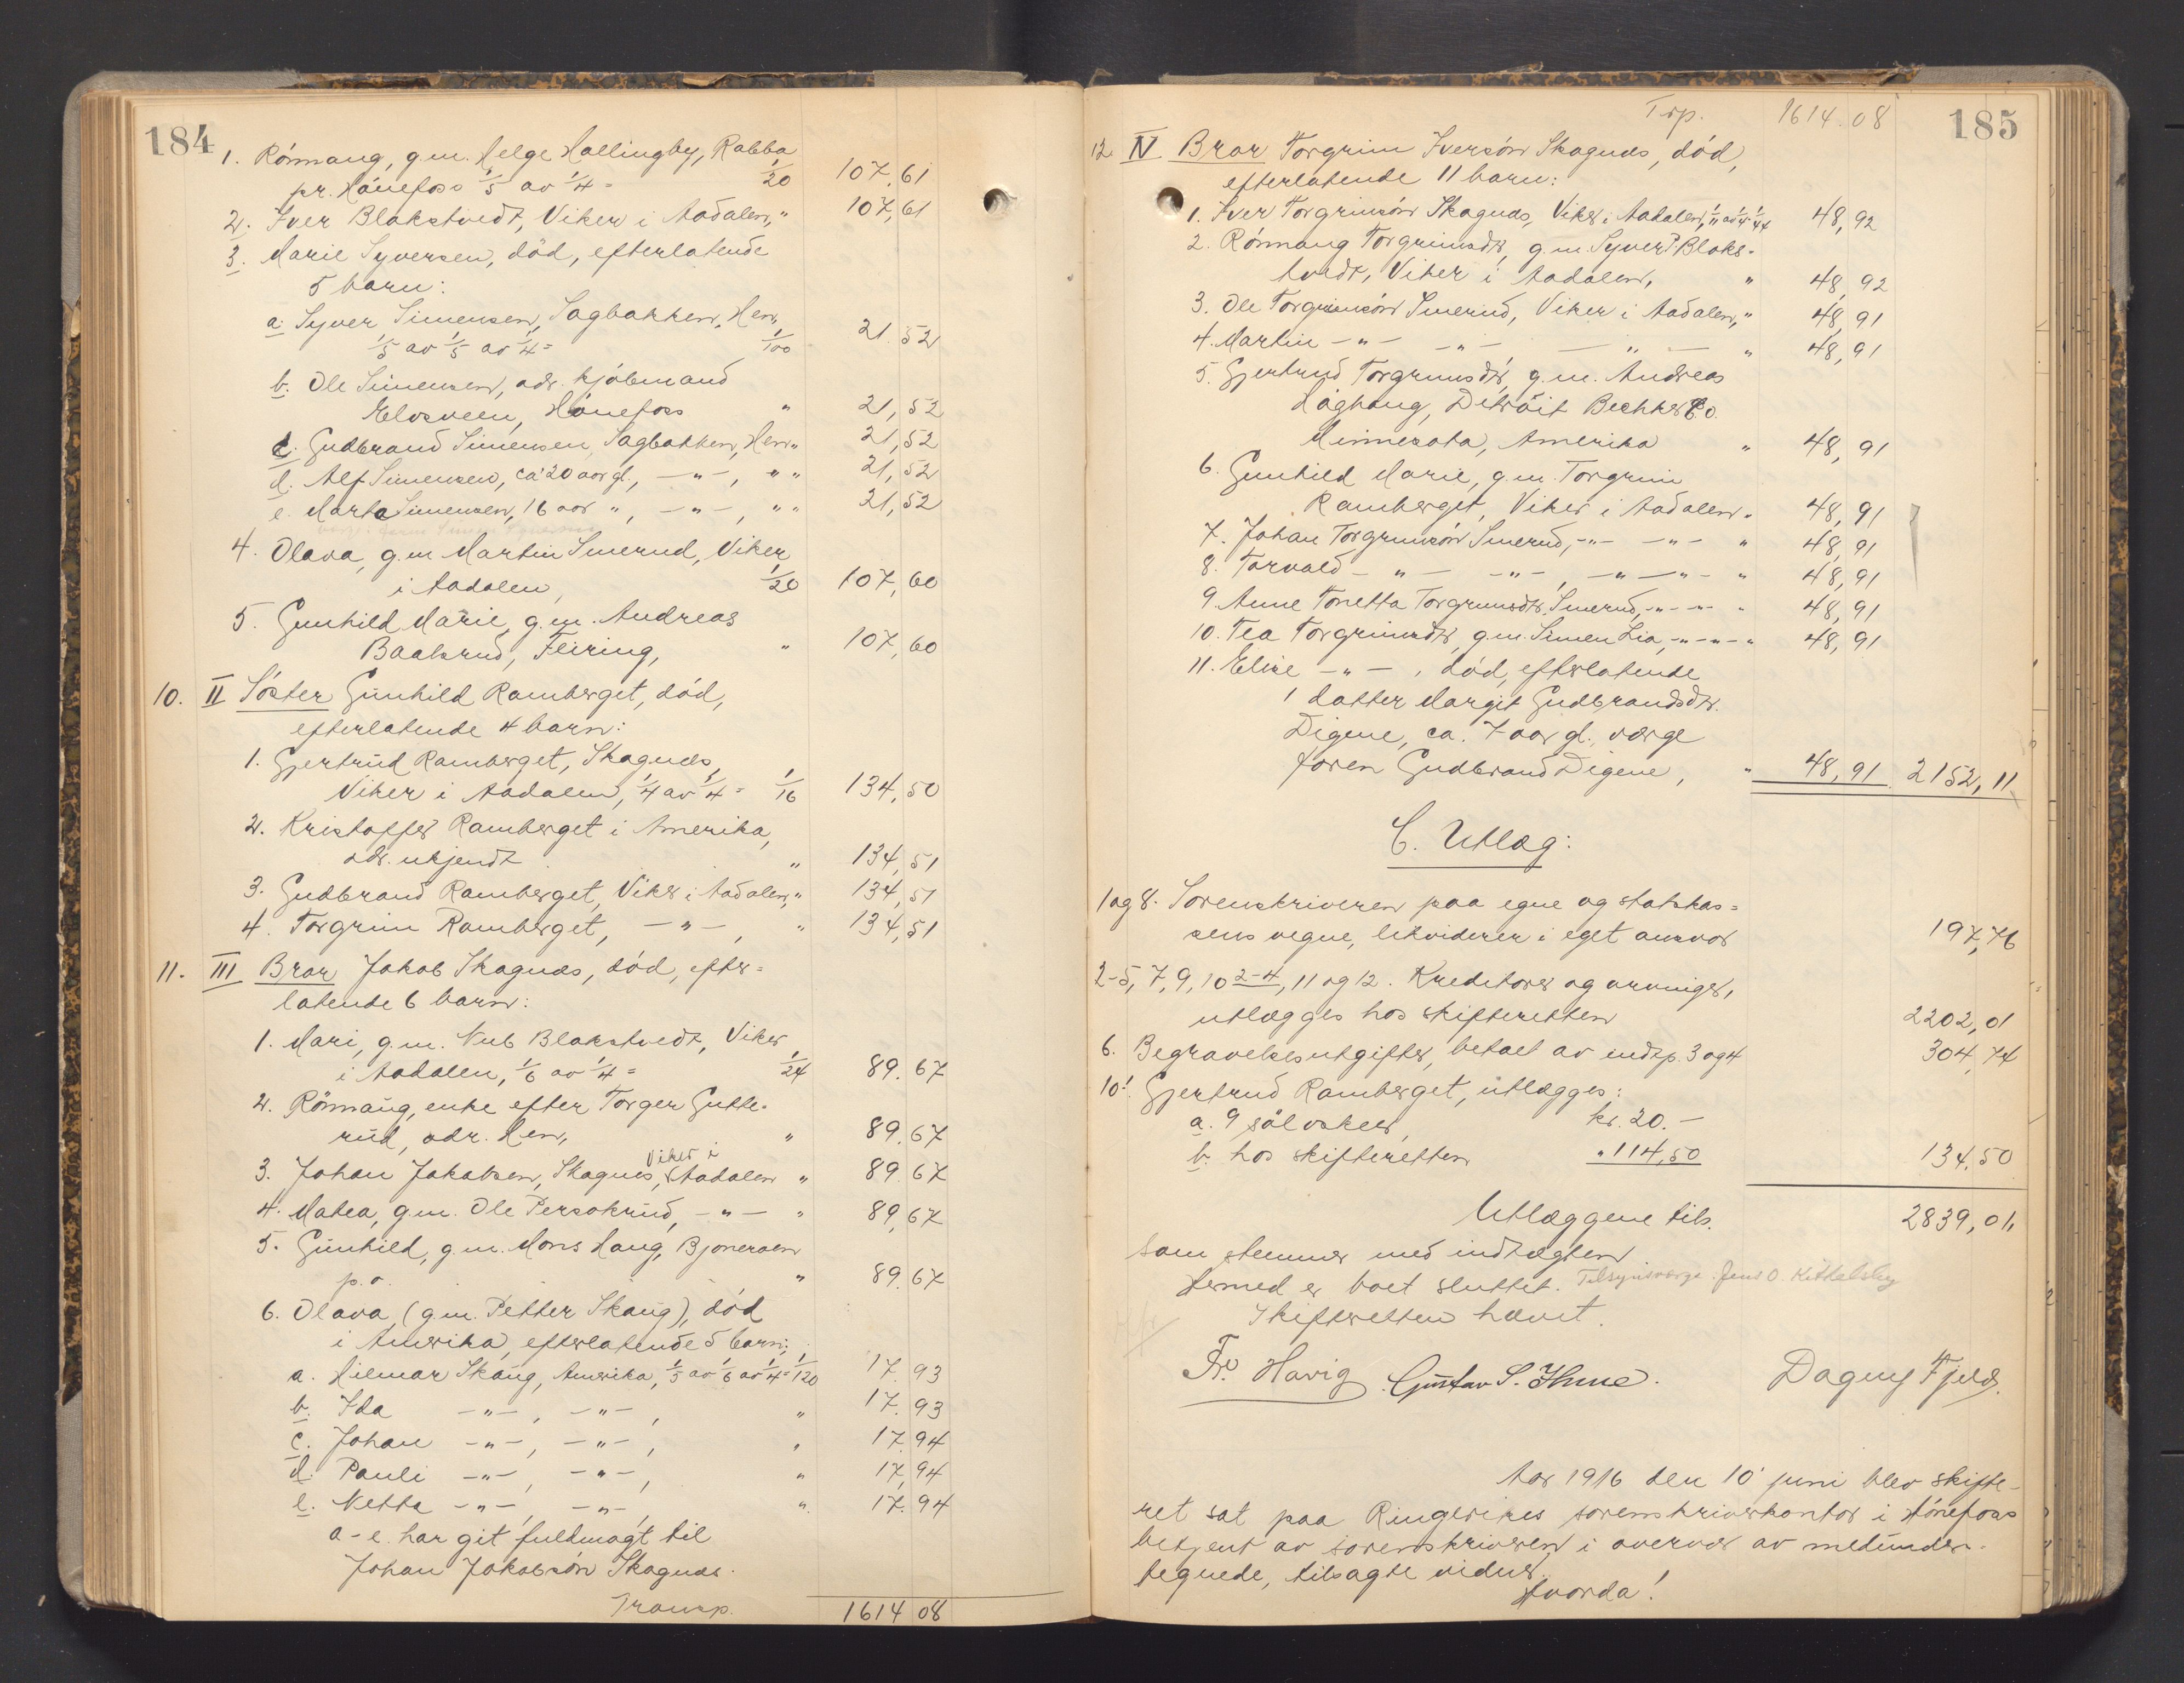 184
1. Rönnaug, g.m. Helge Hallingby, Rabba
pr. Hönefoss 1/5 av 1/4 = 1/20 107,61
2. Iver Blakstvedt, Viker i Aadalen, " 107,61
3. Marie Syversen, död, efterlatende
5 barn:
a. Syver Simensen, Sagbakken, Hen,
1/5 av 1/5 av 1/4 = 1/100 21.52
b. Ole Simensen, adr. kjöbmand
Elvsveen, Hönefoss " 21,52
c. Gudbrand Simensen, Sagbakken, Hen " 21,52
d. Alf Simensen, ca 20 aar gl., -"-, " " 21,52
e. Marta Simensen, 16 aar ", -"-, " " 21,52
4. Olava, g.m Martin Smerud, Viker
i Aadalen, 1/20 107,60
5. Gunhild Marie, g.m. Andreas
Baalsrud, Feiring, " 107,60
10. II Söster Gunhild Ramberget, död,
efterlatende 4 barn:
1. Gjertrud Ramberget, Skagnæs,
Viker i Aadalen, 1/4 av 1/4 = 1/16 134,50
2. Kristoffer Ramberget i Amerika,
adr. ukjendt " 134,51
3. Gudbrand Ramberget, Viker i Aadalen, " 134,51
4. Torgrim Ramberget, -"-, " 134,51
11. III Bror Jakob Skagnæs, död, efter=
latende 6 barn:
1. Mari, g.m. Nub Blakstvedt, Viker
i Aadalen, 1/6 av 1/4 = 1/24 89.67
2. Rönnaug, enke efter Torger Gutte-
rud, adr. Hen, " 89.67
3. Johan Jakobsen, Skagnæs, Viker i Aadalen " 89.67
4. Matea, g.m. Ole Persokrud, -"- " 89,67
5. Gunhild, g.m. Mons Haug, Bjoneroen
p.o. " 89.67
6. Olava, (g.m. Petter Skaug), död
i Amerika, efterlatende 5 barn:
a. Hilmar Skaug, Amerika, 1/5 av 1/6 av 1/4 = 1/120 17.93
b. Ida -"-, -"-, " 17.93
c. Johan -"-, -"-, " 17.94
d. Pauli -"-, -"-, " 17,94
e. Netta -"-, -"-, " 17.94
a-e. har git fuldmagt til
Johan Jakobsön Skagnæs.
Transp. 1614 08
Trp. 1614.08 185
12 IV Bror Torgrim Iversön Skagnæs, död,
efterlatende 11 barn:
1. Iver Torgrimsön Skagnæs, Viker i Aadalen, 1/11 av 1/4 1/44 48,92
2. Rönnaug Torgrimsdtr, g.m. Syver P. Blaks-
tvedt, Viker i Aadalen, " 48,92
3. Ole Torgrimsön Smerud, Viker i Aadalen, " 48,91
4. Martin -"- -"- -"- " 48,91
5. Gjertrud Torgrimsdtr, g.m. Andreas
Haghaug, Detroit Bechker Co.
Minnesota, Amerika " 48,91
6. Gunhild Marie, g.m. Torgrim
Ramberget, Viker i Aadalen " 48,91
7. Johan Torgrimsön Smerud, -"- -"- " 48,91
8. Torvald -"- -"-, -"-"- " 48,91
9. Anne Tonetta Torgrimsdtr. Smerud, -"-"- " 48,91
10. Tea Torgrimsdtr, g.m. Simen Lia, -"-"- " 48,91
11. Elise -"-, död, efterlatende
1 datter Margit Gudbrandsdtr.
Digene, ca. 7 aar gl., verge
faren Gudbrand Digene, " 48,91 2152,11
C. Utlæg:
1 og 8. Sorenskriveren paa egne og statskas=
sens vegne, likviderer i eget ansvar 197,76
2-5, 7, 9, 10 2-4, 11 og 12. Kreditorer og arvinger,
utlægges hos skifteretten 2202,01
6. Begravelsesutgifter, betalt av indtp. 3 og 4 304,74
10.1 Gjertrud Ramberget, utlægges:
a. 9 sölvskeer, kr. 20.-
b. hos skifteretten " 114,50 134,50
Utlæggene tils. 2839,01,
som stemmer med indtægten
Hermed er boet sluttet. Tilsynsverge: Jens O. Kittelsby
Skifteretten hævet.
Fr. Havig Gustav S. Ihme. Dagny Fjeld.
Aar 1916 den 10 juni blev skifte-
ret sat paa Ringerikes sorenskriverkontor i Hönefoss
betjent av sorenskriveren i overvær av medunder-
tegnede, tilsagte vidner.
Hvorda!